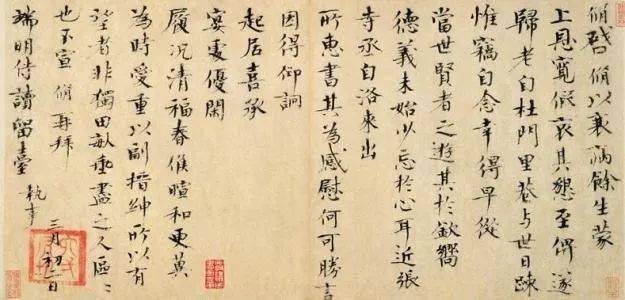 脩啓脩以衰病餘生蒙
上恩寬假哀其懇至俾遂
歸老自杜門里巷與世日疎
惟竊自念幸得早從
當世賢者之遊其於欽嚮
德義未始少忘於心耳近張
寺丞自洛來出
所惠書其為感慰何可勝言
因得仰詢
起居喜承
宴處優閑
履況清福春候暄和更冀
為時愛重以副搢紳所以有
望者非獨田畝垂盡之人區區
也不宣 脩再拜
端明侍讀留臺 執事
三月初二日